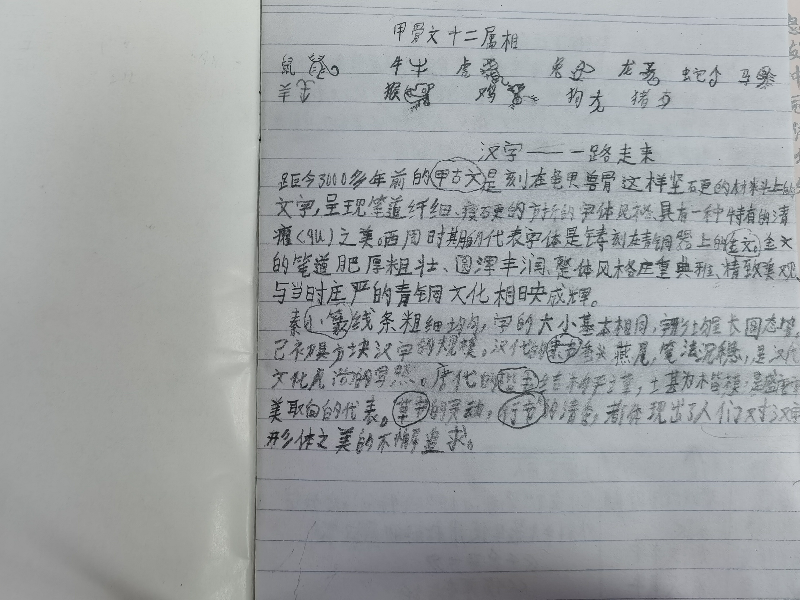 甲骨文十二属相
鼠 牛 虎 兔 龙 蛇 马
羊 猴 鸡 狗 猪
汉字——一路走来
距今3000多年前的甲古文是刻在龟甲兽骨这样坚硬的材料上的
文字,呈现笔道纤细、瘦硬的方折的字体风格,具有一种特有的清
癯(qu)之美。西周时期的代表字体是铸刻在青铜器上的金文,金文
的笔道肥厚粗壮、圆浑丰润、整体风格庄重典雅、精致美观
与当时庄严的青铜文化相映成辉。
秦小篆线条粗细均匀,字的大小基本相同,长圆
已初具方块汉字的规模。汉代的蚕头燕尾,笔法沉稳,是汉代
文化的写照。唐代的楷书是盛唐审
美取向的代表。草书的灵动,行书的清秀,都体现出了人们对汉字
形体之美的不懈追求。